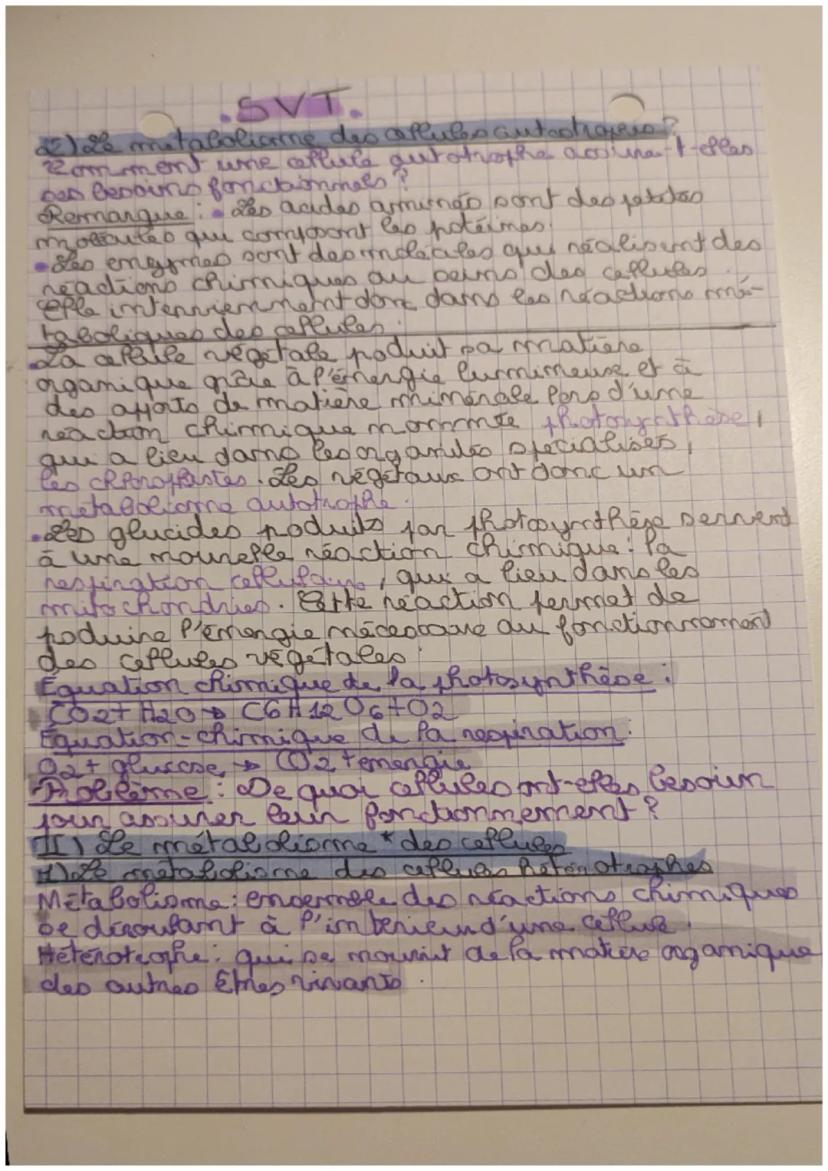 .SVT.
2) Le métabolisme des cellules autotrophes ?
Comment une cellule autotrophe assure-t-elles
ses besoins fonctionnels ?
Remarque : • Les acides aminés sont des petites
molécules qui composent les protéines.
• Les enzymes sont des molécules qui réalisent des
réactions chimiques au sein des cellules.
Elle interviennent donc dans les réactions mé-
taboliques des cellules.
La cellule végétale produit sa matière
organique grâce à l'énergie lumineuse et à
des apports de matière minérale lors d'une
réaction chimique nommée photosynthèse,
qui a lieu dans les organites spécialisés,
les chloroplastes. Les végétaux ont donc un
métabolisme autotrophe.
• Les glucides produits par photosynthèse servent
à une nouvelle réaction chimique : la
respiration cellulaire, qui a lieu dans les
mitochondries. Cette réaction permet de
produire l'énergie nécessaire au fonctionnement
des cellules végétales.
Équation chimique de la photosynthèse :
CO2 + H2O → C6H12O6 + O2
Équation chimique de la respiration :
O2 + glucose → CO2 + énergie
Problème : De quoi cellules ont-elles besoin
pour assurer leur fonctionnement ?
II) Le métabolisme * des cellules
1) Le métabolisme des cellules hétérotrophes
Métabolisme : ensemble des réactions chimiques
se déroulant à l'intérieur d'une cellule.
Hétérotrophe : qui se nourrit de la matière organique
des autres Êtres vivants.